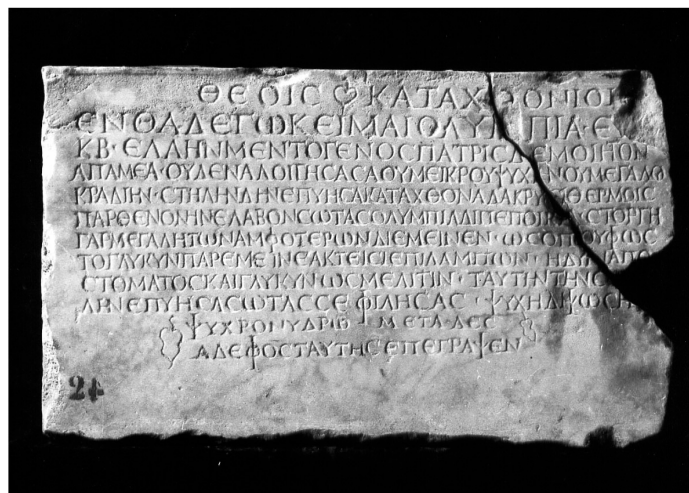 ΘΕΟΙС ΚΑΤΑΧΘΟΝΙΟΙ
ΕΝΘΑΔΕΓѠΚΕΙΜΑΙΟΛΥΜΠΙΑ·Ε
ΚΒ·ΕΛΛΗΝΜΕΝΤΟΓΕΝΟСΠΑΤΡΙСΔΕΜΟΙΗΟΝ
ΑΠΑΜΕΑ·ΟΥΔΕΝΑΛΟΙΠΗСΑСΑΟΥΜΕΙΚΡΟΥΨΥΧΝΟΥΜΕΓΑΛѠ
ΚΡΑΔΙΗΝ·СΤΗΛΗΝΔΗΝΕΠΥΗСΑΚΑΤΑΧΘΟΝΑΔΑΚΡΥСΙΘΕΡΜΟΙС
ΠΑΡΘΕΝΟΝΗΝΕΛΑΒΟΝСѠΤΑСΟΛΥΜΠΙΑΔΙΠΕΠΟΙΗΚΑ СΤΟΡΓΗ
ΓΑΡΜΕΓΑΛΗΤѠΝΑΜΦΟΤΕΡѠΝΔΙΕΜΕΙΝΕΝ·ѠСΟΠΟΥΦѠС
ΤΟΓΛΥΚΥΝΠΑΡΕΜΕΙΝΕΑΚΤΕΙСΙΕΠΙΛΑΜΠѠΝ·ΗΔΥΝΑΠΟ
СΤΟΜΑΤΟСΚΑΙΓΛΥΚΥΝѠСΜΕΛΙΤΙΝ·ΤΑΥΤΗΝΤΗΝС
ΛΗΝΕΠΥΗСΑСѠΤΑССΕΦΙΛΗСΑС·ΨΥΧΗΔΙΨѠСΗ
ΨΥΧΡΟΝΥΔΡѠ ΜΕΤΑΔΕС
ΑΔΕΦΟСΤΑΥΤΗСΕΠΕΓΡΑΨΕΝ
24